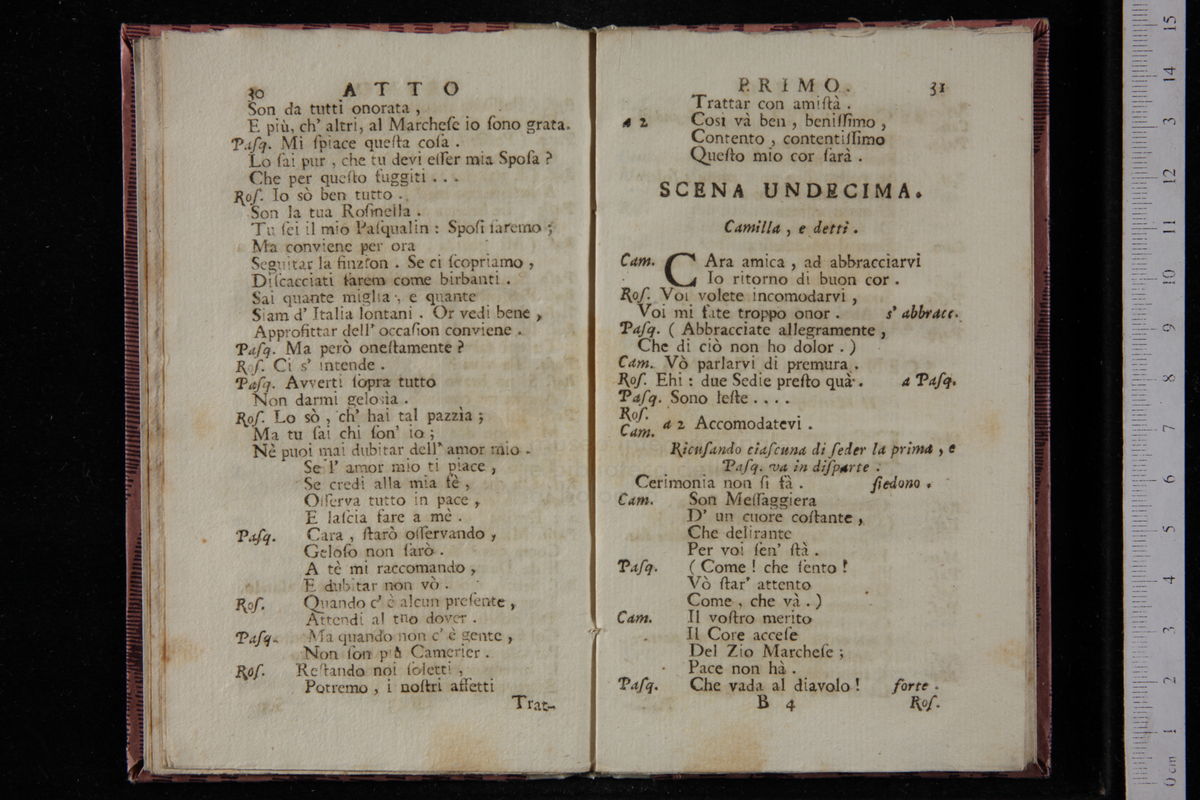 30 ATTO
Son da tutti onorata ,
E più, ch' altri, al Marcheſe io ſono grata.
Paſq. Mi ſpiace queſta coſa .
Lo ſai pur , che tu devi eſſer mia Spoſa ?
Che per queſto fuggiti . . .
Roſ. Io sò ben tutto .
Son la tua Roſinella .
Tu ſei il mio Paſqualin : Spoſi ſaremo ;
Ma conviene per ora
Seguitar la finzion . Se ci ſcopriamo ,
Diſcacciati ſarem come birbanti .
Sai quante miglia , e quante
Siam d' Italia lontani . Or vedi bene ,
Approfittar dell' occaſion conviene .
Paſq. Ma però oneſtamente ?
Roſ. Ci s' intende .
Paſq. Avverti ſopra tutto
Non darmi geloſia .
Roſ. Lo sò , ch' hai tal pazzìa ;
Ma tu ſai chi ſon' io ;
Nè puoi mai dubitar dell' amor mio .
Se l' amor mio ti piace ,
Se credi alla mia fè ,
Oſſerva tutto in pace ,
E laſcia fare a mè .
Paſq. Cara , ſtarò oſſervando ,
Geloſo non ſarò .
A tè mi raccomando ,
E dubitar non vò .
Roſ. Quando c' è alcun preſente ,
Attendi al tuo dover .
Paſq. Ma quando non c' è gente ,
Non ſon più Camerier .
Roſ. Reſtando noi ſoletti ,
Potremo , i noſtri affetti
Trat-
PRIMO. 31
Trattar con amiſtà .
a 2 Così và ben , beniſſimo ,
Contento , contentiſſimo
Queſto mio cor ſarà .
SCENA UNDECIMA.
Camilla , e detti .
Cam. CAra amica , ad abbracciarvi
Io ritorno di buon cor .
Roſ. Voi volete incomodarvi ,
Voi mi fate troppo onor . s' abbracc.
Paſq. ( Abbracciate allegramente ,
Che di ciò non ho dolor . )
Cam. Vò parlarvi di premura .
Roſ. Ehi : due Sedie preſto quà . a Paſq.
Paſq. Sono leſte . . . .
Roſ.
Cam. a 2 Accomodatevi .
Ricuſando ciaſcuna di ſeder la prima , e
Paſq. va in diſparte .
Cerimonia non ſi fà . ſiedono .
Cam. Son Meſſaggiera
D' un cuore coſtante ,
Che delirante
Per voi ſen' ſtà .
Paſq. ( Come ! che ſento !
Vò ſtar' attento
Come , che và . )
Cam. Il voſtro merito
Il Core acceſe
Del Zio Marcheſe ;
Pace non hà .
Paſq. Che vada al diavolo ! forte .
B 4 Roſ.
0 cm 1 2 3 4 5 6 7 8 9 10 11 12 3 14 15